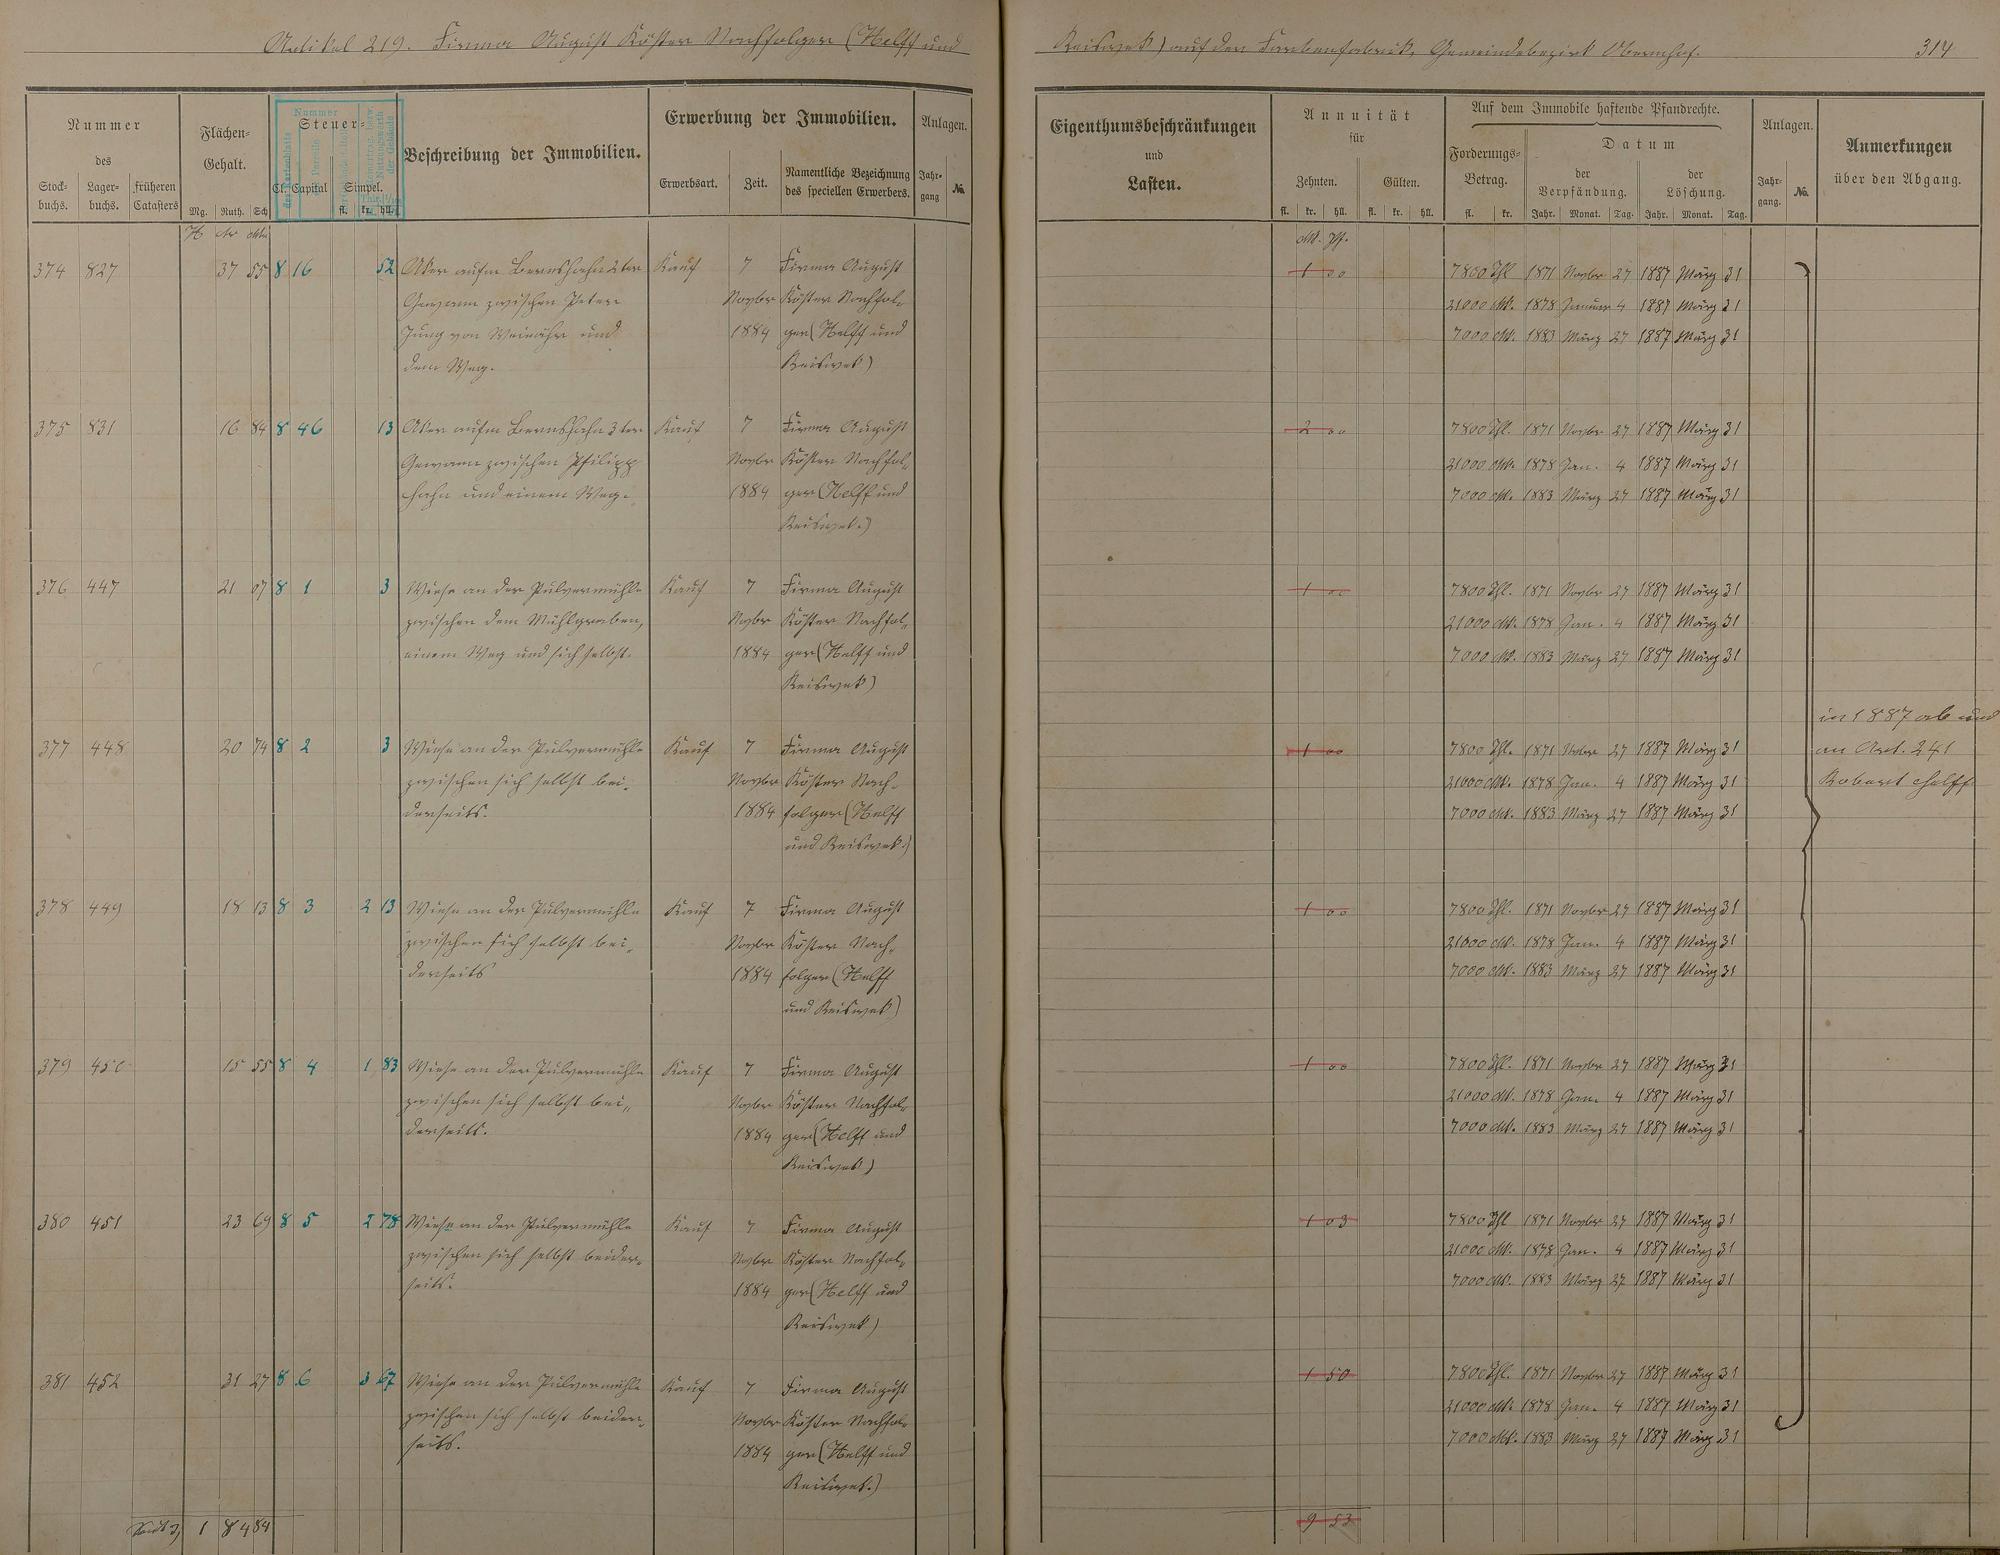 Artikel 219. Firma August Köster Nachfolger (Helff und
Reiswek) auf der Farbenfabrik, Gemeindebezirk Obernhof. 314
Nummer des
Stockbuchs. Lagerbuchs. früheren Catasters
Flächen-Gehalt.
Mg. Ruth. Sch
Steuer-
Cl. Capital Simpel.
fl. kr. hll.
Nummer
Beschreibung der Immobilien.
Erwerbung der Immobilien.
Erwerbsart. Zeit. Namentliche Bezeichnung des speciellen Erwerbers.
Anlagen.
Jahrgang No.
Eigenthumsbeschränkungen
und
Lasten.
Annuität
für
Zehnten. Gülten.
fl. kr. hll. fl. kr. hll.
Auf dem Immobile haftende Pfandrechte.
Forderungs-Betrag. Datum
der Verpfändung. der Löschung.
fl. kr. Jahr. Monat. Tag. Jahr. Monat. Tag.
Anlagen.
Jahrgang. No.
Anmerkungen
über den Abgang.
H Ar Mtr
Mk. Pf.
374 827 37 55 8 16 52 Aker aufm Bernshahn 2ter Kauf 7 Firma August 1 00 7800 Thl 1871 Novbr 27 1887 März 31
Gewann zwischen Peter Novbr Köster Nachfol- 21000 Mk. 1878 Januar 4 1887 März 31
Jung von Weinähr und 1884 ger (Helff und 7000 Mk. 1883 März 27 1887 März 31
dem Weg. Reiswek)
375 831 16 84 8 46 13 Aker aufm Bernshahn 3ter Kauf 7 Firma August 2 00 7800 Thl. 1871 Novbr 27 1887 März 31
Gewann zwischen Philipp Novbr Köster Nachfol- 21000 Mk. 1878 Jan. 4 1887 März 31
Hahn und einem Weg. 1884 ger (Helff und 7000 Mk. 1883 März 27 1887 März 31
Reiswek.)
376 447 21 07 8 1 3 Wiese an der Pulvermühle Kauf 7 Firma August 1 00 7800 Thl. 1871 Novbr 27 1887 März 31
zwischen dem Mühlgraben, Novbr Köster Nachfol- 21000 Mk. 1878 Jan. 4 1887 März 31
einem Weg und sich selbst. 1884 ger (Helff und 7000 Mk. 1883 März 27 1887 März 31
Reiswek)
in 1887 ab und
377 448 20 74 8 2 3 Wiese an der Pulvermühle Kauf 7 Firma August 1 00 7800 Thl. 1871 Novbr 27 1887 März 31 an Art. 241
zwischen sich selbst bei- Novbr Köster Nach- 21000 Mk. 1878 Jan. 4 1887 März 31 Robert Helff
derseits. 1884 folger (Helff 7000 Mk. 1883 März 27 1887 März 31
und Reiswek.)
378 449 18 13 8 3 2 13 Wiese an der Pulvermühle Kauf 7 Firma August 1 00 7800 Thl. 1871 Novbr 27 1887 März 31
zwischen sich selbst bei- Novbr Köster Nach- 21000 Mk. 1878 Jan. 4 1887 März 31
derseits 1884 folger (Helff 7000 Mk. 1883 März 27 1887 März 31
und Reiswek)
379 450 15 55 8 4 1 83 Wiese an der Pulvermühle Kauf 7 Firma August 1 00 7800 Thl. 1871 Novbr 27 1887 März 31
zwischen sich selbst bei- Novbr Köster Nachfol- 21000 Mk. 1878 Jan. 4 1887 März 31
derseits. 1884 ger (Helff und 7000 Mk. 1883 März 27 1887 März 31
Reiswek)
380 451 23 69 8 5 2 78 Wiese an der Pulvermühle Kauf 7 Firma August 1 03 7800 Thl 1871 Novbr 27 1887 März 31
zwischen sich selbst beider- Novbr Köster Nachfol- 21000 Mk. 1878 Jan. 4 1887 März 31
seits. 1884 ger (Helff und 7000 Mk. 1883 März 27 1887 März 31
Reiswek)
381 452 31 27 8 6 3 67 Wiese an der Pulvermühle Kauf 7 Firma August 1 50 7800 Thl. 1871 Novbr 27 1887 März 31
zwischen sich selbst beider- Novbr Köster Nachfol- 21000 Mk. 1878 Jan. 4 1887 März 31
seits. 1884 ger (Helff und 7000 Mk. 1883 März 27 1887 März 31
Reiswek.)
1 84 84 9 53